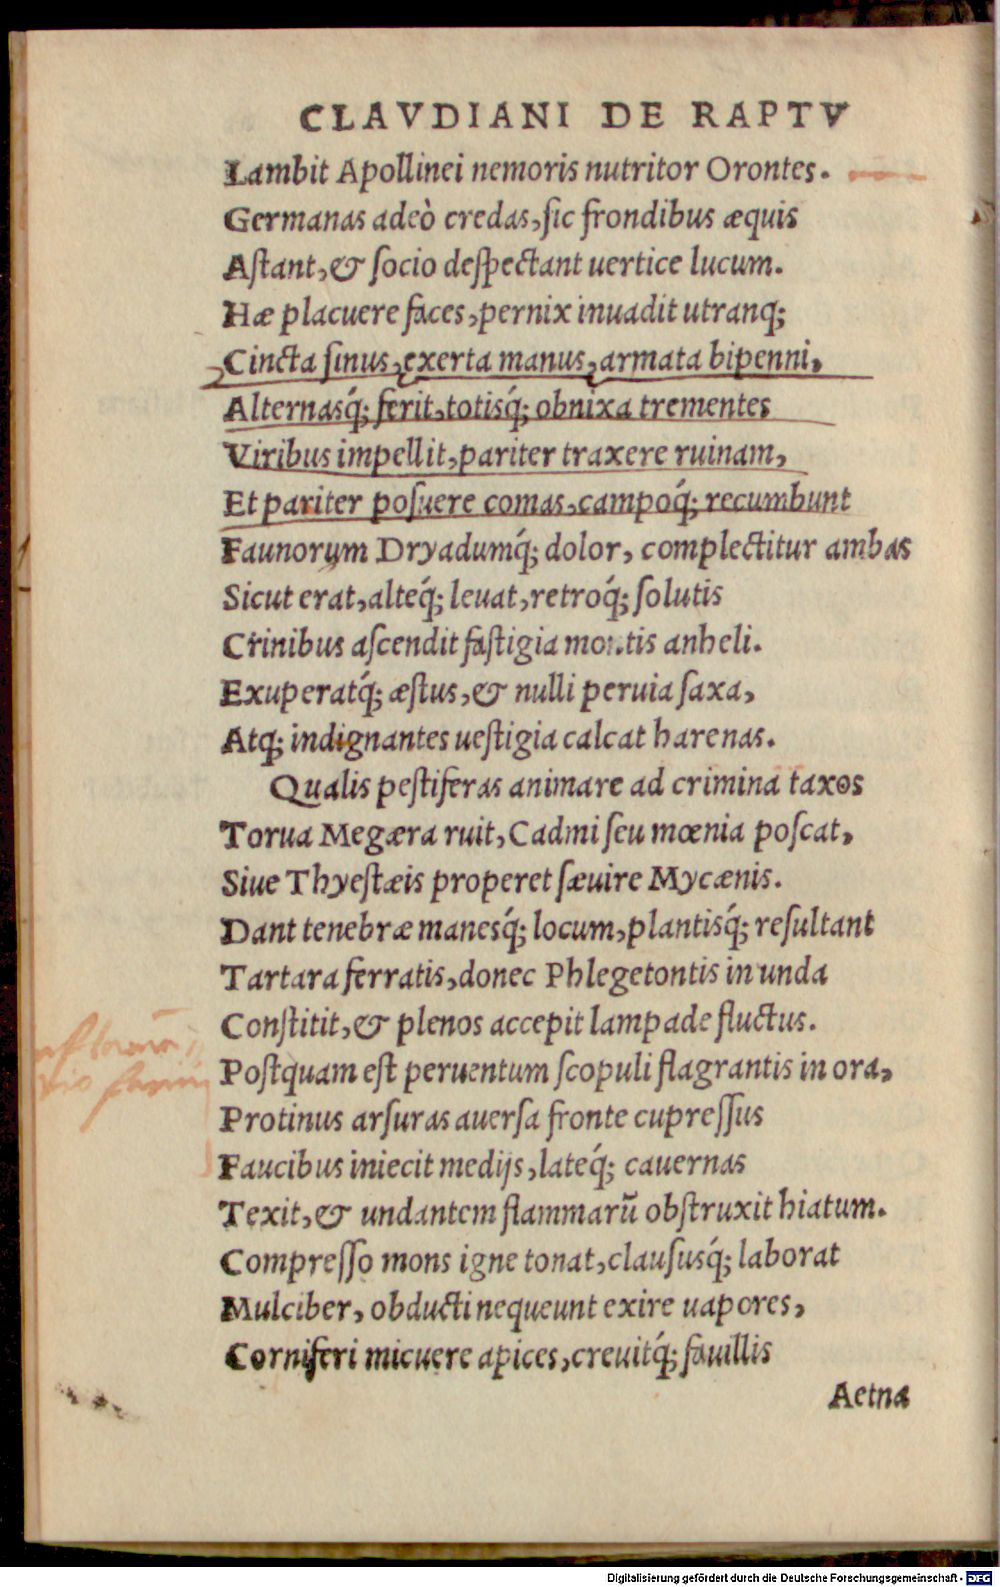 CLAVDIANI DE RAPTV
Lambit Apollinei nemoris nutritor Orontes.
Germanas adeò credas, sic frondibus æquis
Astant, & socio despectant uertice lucum.
Hæ placuere faces, pernix inuadit utranq;
Cincta sinus, exerta manus, armata bipenni,
Alternasq́; ferit, totisq́; obnixa trementes
Viribus impellit, pariter traxere ruinam,
Et pariter posuere comas, campoq́; recumbunt
Faunorum Dryadumq́; dolor, complectitur ambas
Sicut erat, alteq́; leuat, retroq́; solutis
Crinibus ascendit fastigia montis anheli.
Exuperatq́; æstus, & nulli peruia saxa,
Atq; indignantes uestigia calcat harenas.
Qualis pestiferas animare ad crimina taxos
Torua Megæra ruit, Cadmi seu mœnia poscat,
Siue Thyestæis properet sæuire Mycænis.
Dant tenebræ manesq́; locum, plantisq́; resultant
Tartara ferratis, donec Phlegetontis in unda
Constitit, & plenos accepit lampade fluctus.
Postquam est peruentum scopuli flagrantis in ora,
Protinus arsuras auersa fronte cupressus
Faucibus iniecit medijs, lateq́; cauernas
Texit, & undantem flammarũ obstruxit hiatum.
Compresso mons igne tonat, claususq́; laborat
Mulciber, obducti nequeunt exire uapores,
Corniferi micuere apices, creuitq́; fauillis
Aetna
Digitalisierung gefördert durch die Deutsche Forschungsgemeinschaft - DFG